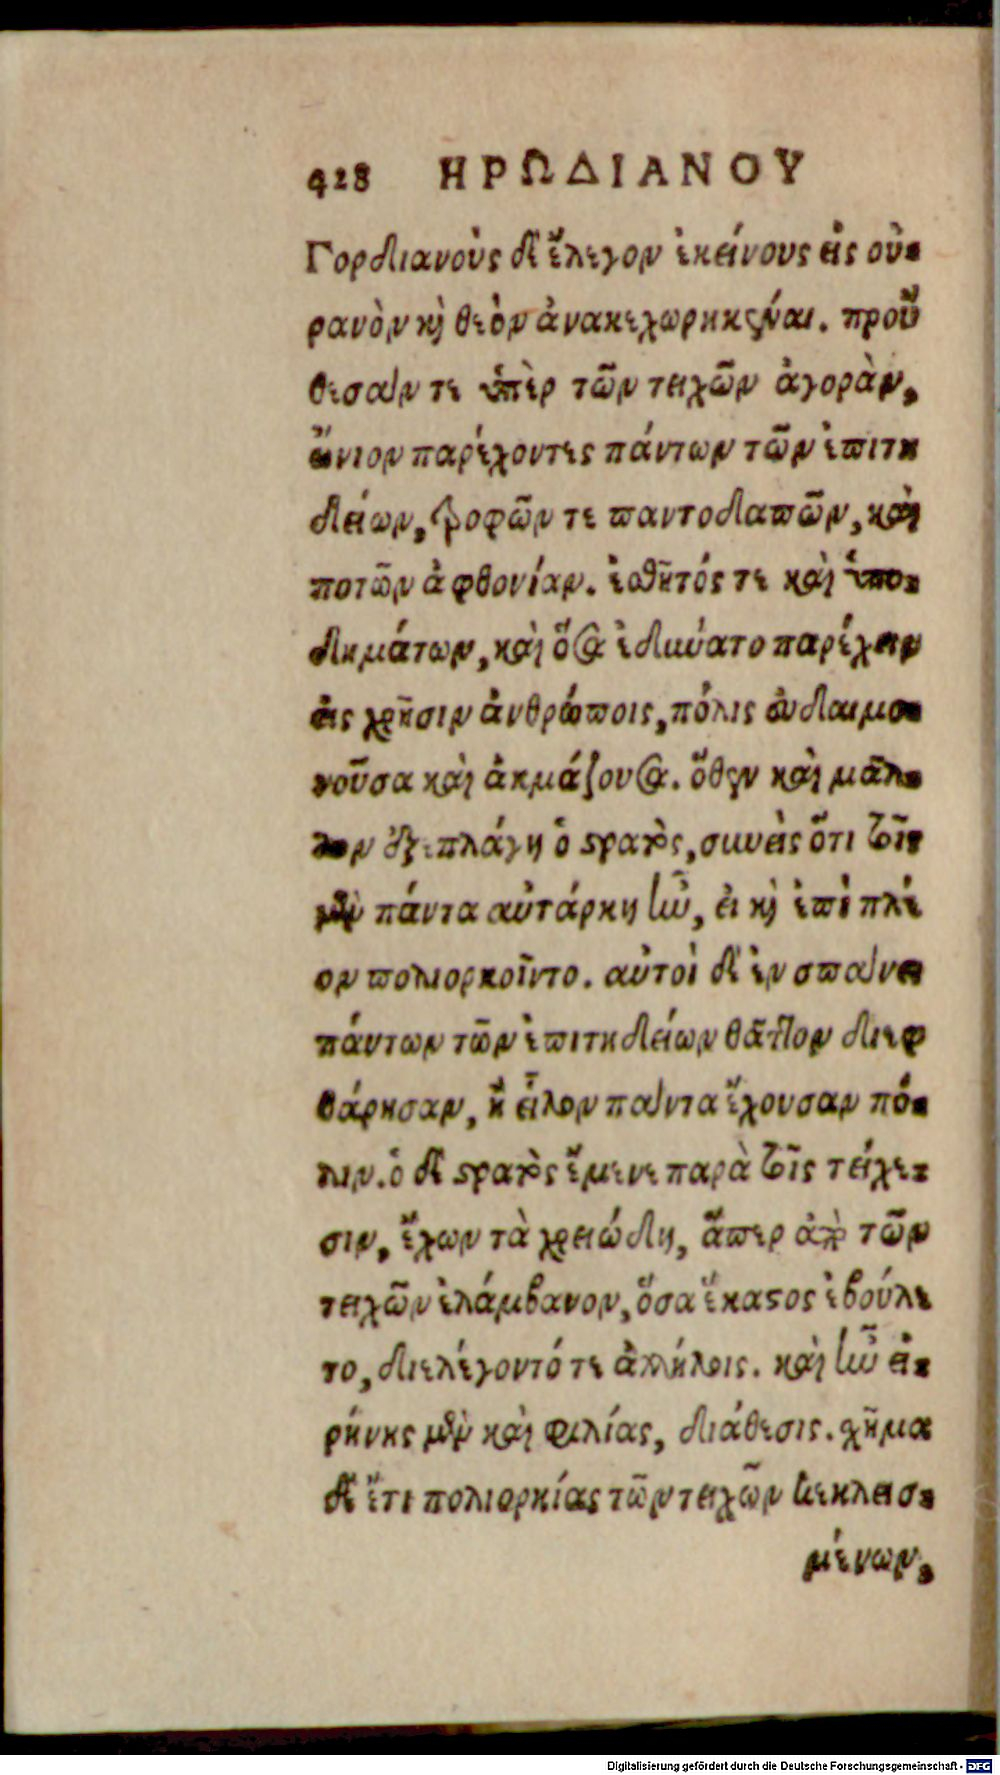 428 ΗΡΩΔΙΑΝΟΥ
Γορδιανοὺς δὲ ἔλεγον ἐκείνους εἰς οὐ-
ρανὸν κỳ θεὸν ἀνακεχωρηκέναι. προὔ
θεσαν τε ὑπὲρ τῶν τειχῶν ἀγορὰν,
ὤνιον παρέχοντες πάντων τῶν ἐπιτη
δείων, τροφῶν τε παντοδαπῶν, καὶ
ποτῶν ἀφθονίαν. ἐσθῆτός τε καὶ ὑπο-
δημάτων, καὶ ὅσα ἐδύνατο παρέχειν
εἰς χρῆσιν ἀνθρώποις, πόλις εὐδαιμο-
νοῦσα καὶ ἀκμάζουσα. ὅθεν καὶ μᾶλ-
λον ἐξεπλάγη ὁ στρατὸς, συνεὶς ὅτι τοῖς
μὲν πάντα αὐτάρκη ἦν, εἰ κỳ ἐπὶ πλέ
ον πολιορκοῖντο. αὐτοὶ δὲ ἐν σπάνει
πάντων τῶν ἐπιτηδείων θᾶττον διεφ
θάρησαν, ἢ εἷλον πάντα ἔχουσαν πό-
λιν. ὁ δὲ στρατὸς ἔμενε παρὰ τοῖς τείχε-
σιν, ἔχων τὰ χρειώδη, ἅπερ ἀπὸ τῶν
τειχῶν ἐλάμβανον, ὅσα ἕκαστος ἐβούλε
το, διελέγοντό τε ἀλλήλοις. καὶ ἦν εἰ-
ρήνης μὲν καὶ φιλίας, διάθεσις. χῆμα
δὲ ἔτι πολιορκίας τῶν τειχῶν κεκλεισ-
μένων,
Digitalisierung gefördert durch die Deutsche Forschungsgemeinschaft - DFG